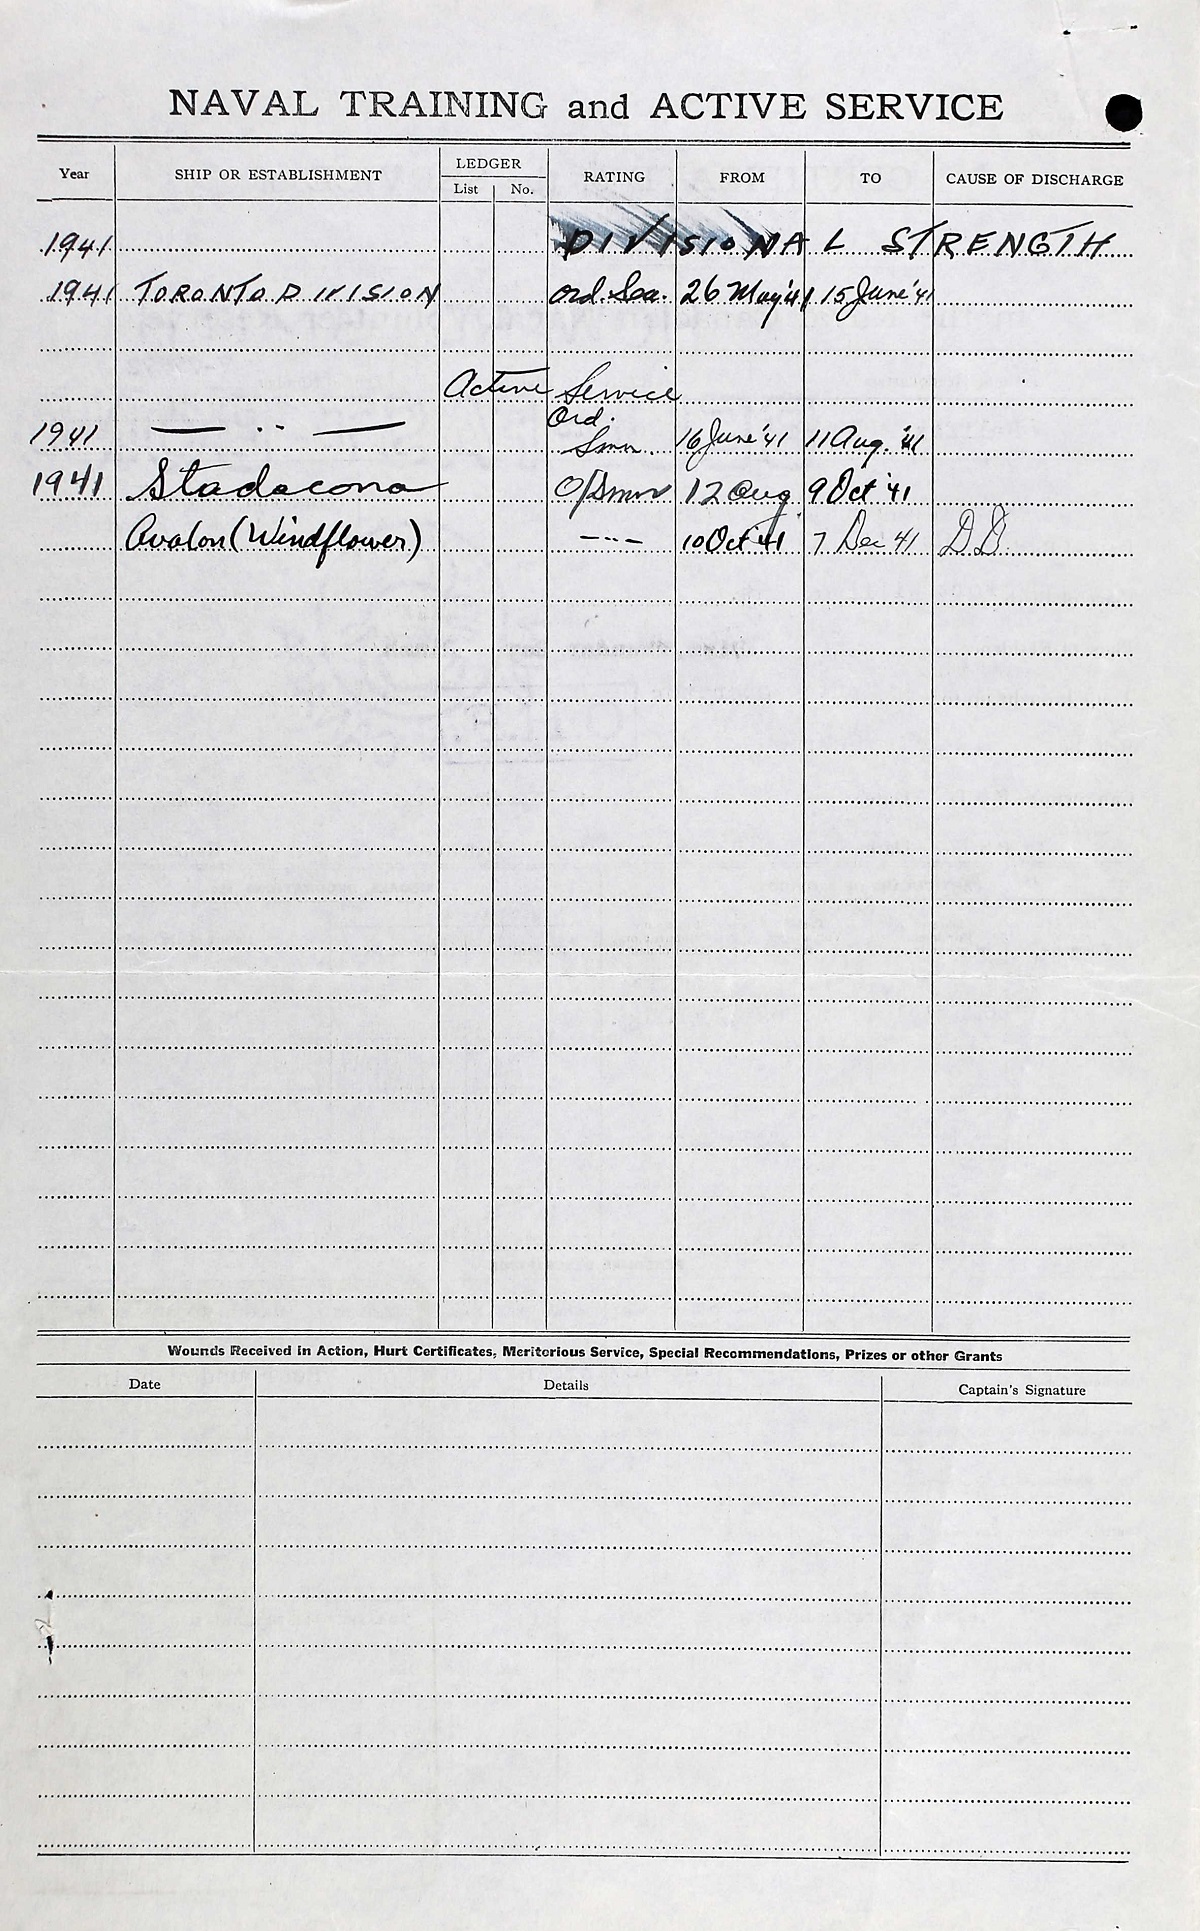 NAVAL TRAINING and ACTIVE SERVICE
Year SHIP OR ESTABLISHMENT LEDGER List No. RATING FROM TO CAUSE OF DISCHARGE
1941 DIVISIONAL STRENGTH
1941 TORONTO DIVISION Ord. Sea. 26 May '41 15 June '41
Active Service
1941 — '' — Ord. Smn. 16 June '41 11 Aug. '41
1941 Stadacona O/Smn 12 Aug 9 Oct '41
Avalon (Windflower) -''- 10 Oct '41 7 Dec 41 D.D.
Wounds Received in Action, Hurt Certificates, Meritorious Service, Special Recommendations, Prizes or other Grants
Date Details Captain's Signature